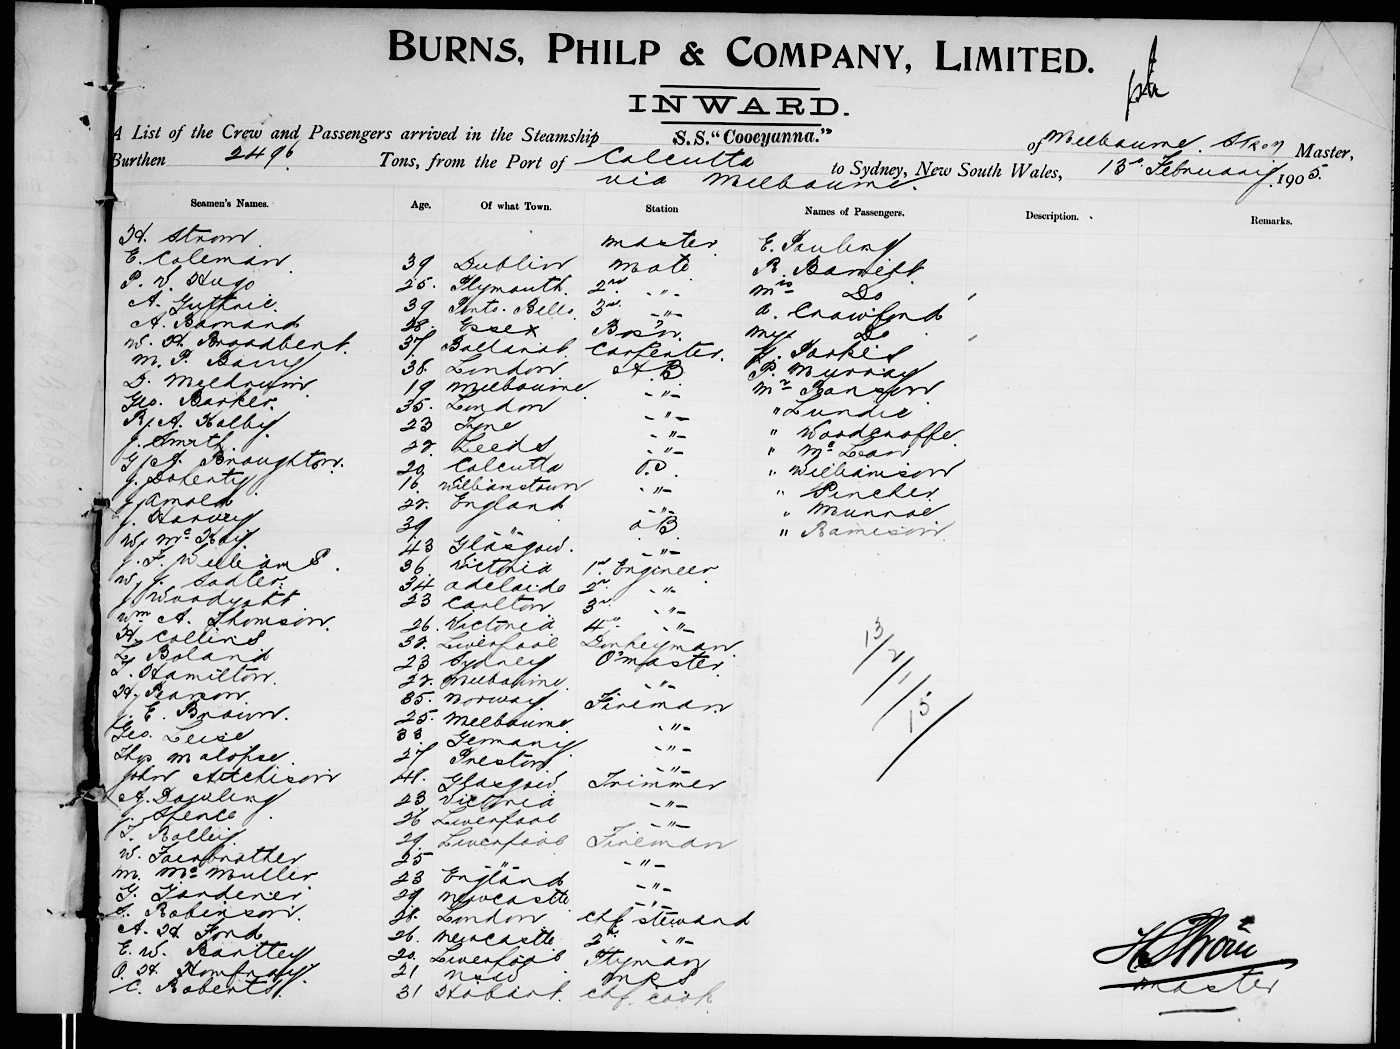 BURNS, PHILP & COMPANY, LIMITED.
INWARD.
A List of the Crew and Passengers arrived in the Steamship S.S. "Cooeyanna." of Melbourne, Master,
Burthen 2496 Tons, from the Port of Calcutta via Melbourne to Sydney, New South Wales, 13 February 1905
Seamen's Names. Age. Of what Town. Station Names of Passengers. Description. Remarks.
H. Strom Master E. Pauling
E. Coleman 39 Dublin Mate R. Barrett
P. V. Hugo 25 Plymouth 2nd -"- Mrs Do
A. Guthrie 39 Porto Bello 3rd -"- A. Crawford
A. Barnard 28 Essex Bos'n Do
W. H. Broadbent 37 Ballarat Carpenter J. Parkes
M. P. Barry 38 London A B P. Murray
D. Meldrum 19 Melbourne -"- Mr Ranson
Geo. Barker 35 London -"- " Lundie
R. A. Kolby 23 Tyne -"- " Woodcroffe
J. Smith 22 Leeds -"- " McLean
G. A. Broughton 20 Calcutta O.S " Williamson
J. Doherty 16 Williamstown -"- " Pincher
J. Arnold 22 England -"- " Munroe
J. Harvey 39 -"- A B " Ramison
W. McKay 43 Glasgow -"-
J. F. Williams 36 Victoria 1st Engineer
W. J. Sadler 34 Adelaide 2nd -"-
J. Woodyatt 23 Carlton 3rd -"-
Wm A. Thomson 26 Victoria 4th -"-
H. Collins 32 Liverpool Donkeyman
L. Boland 23 Sydney
T. Hamilton 22 Melbourne -"-
H. Ranson 35 Norway Fireman
J. E. Brown 25 Melbourne -"-
Geo. Leise 33 Germany -"-
Thos Malopse 27 Preston -"-
John Aitchison 41 Glasgow Trimmer
A. Dowling 23 Victoria -"-
J. Spence 26 Liverpool -"-
T. Rolley 29 Liverpool Fireman
W. Fairbrother 25 -"- -"-
M. McMuller 23 England -"-
G. Gardener 29 Newcastle -"-
G. Robinson 28 London Chf Steward
A. H. Ford 26 Newcastle 2nd -"-
E. W. Bartley 20 Liverpool P'tryman
O. H. Homfray 21 NSW MRS
C. Roberts 31 Hobart Chf Cook
13/2/15
H Strom
Master